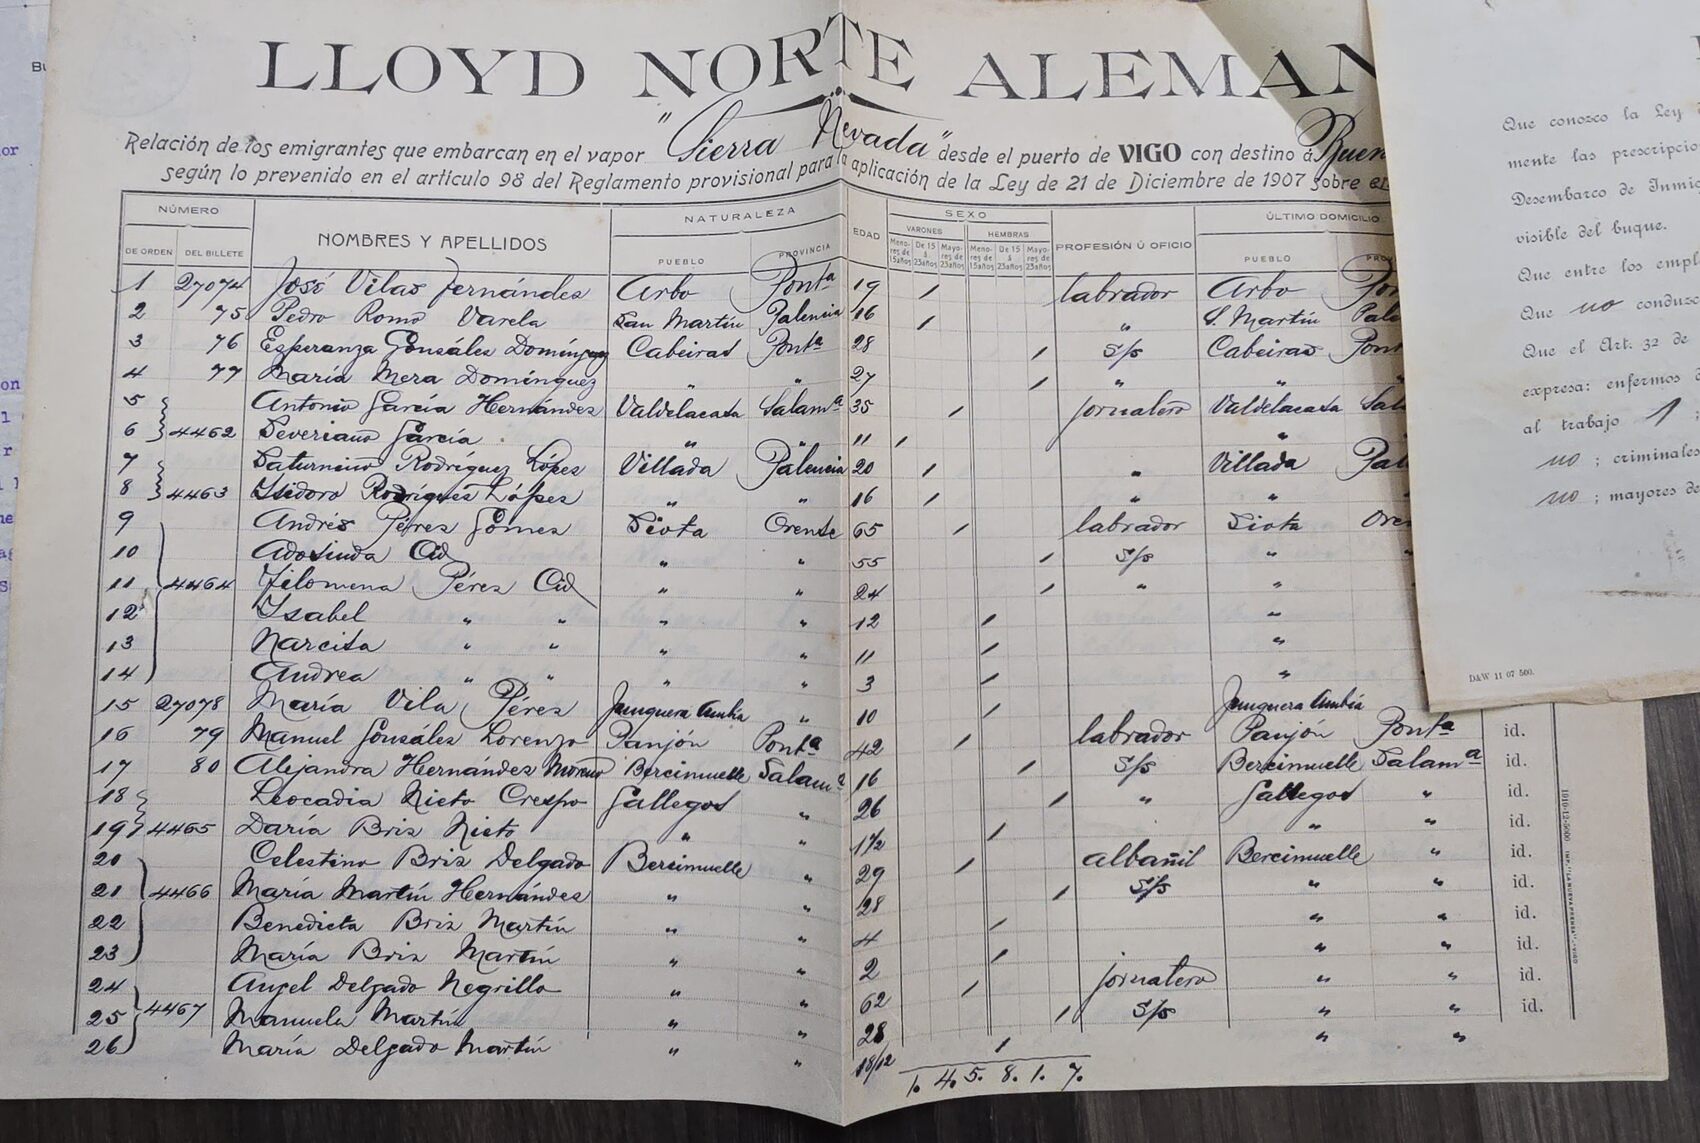 LLOYD NORTE ALEMAN
Relación de los emigrantes que embarcan en el vapor "Sierra Nevada" desde el puerto de VIGO con destino á Buen
según lo prevenido en el artículo 98 del Reglamento provisional para la aplicación de la Ley de 21 de Diciembre de 1907 sobre
NÚMERO NOMBRES Y APELLIDOS NATURALEZA EDAD SEXO PROFESIÓN Ú OFICIO ÚLTIMO DOMICILIO
VARONES HEMBRAS
DE ORDEN DEL BILLETE PUEBLO PROVINCIA Menores de 15 años De 15 á 23 años Mayores de 23 años Menores de 15 años De 15 á 23 años Mayores de 23 años PUEBLO
1 27074 José Vilas Fernández Arbo Pontª 19 / labrador Arbo Pon
2 75 Pedro Romo Varela San Martín Palencia 16 / " S. Martín Pale
3 76 Esperanza Gonsáles Domínguez Cabeiras Pontª 28 / S/p Cabeiras Pont
4 77 María Mera Domínguez " " 27 / " "
5 Antonio García Hernándes Valdelacasa Salamª 35 / jornalero Valdelacasa Sal
6 4462 Severiano García " " 11 / "
7 Saturnino Rodríguez Lópes Villada Palencia 20 / " Villada Pal
8 4463 Isidoro Rodrígues Lópes " " 16 / " "
9 Andrés Péres Gómes Siota Orense 65 / labrador Siota Ore
10 Adosinda Cid " " 55 / S/p "
11 4464 Filomena Péres Cid " " 24 / " "
12 Isabel " " " " 12 / "
13 Narcisa " " " " 11 / "
14 Andrea " " " " 3 / "
15 27078 María Vila Péres Junquera Ambia " 10 / Junquera Ambia
16 79 Manuel Gonsáles Lorenzo Panjón Pontª 42 / labrador Panjón Pontª id.
17 80 Alejandra Hernándes Moreno Bercimuelle Salamª 16 / S/p Bercimuelle Salamª id.
18 Leocadia Nieto Crespo Gallegos " 26 / " Gallegos " id.
19 4465 Daría Bris Nieto " " 1½ / " " id.
20 Celestino Bris Delgado Bercimuelle " 29 / albañil Bercimuelle " id.
21 4466 María Martín Hernándes " " 28 / S/p " " id.
22 Benedicta Bris Martín " " 4 / " " id.
23 María Bris Martín " " 2 / " " id.
24 Angel Delgado Negrillo " " 62 / jornalero " " id.
25 4467 Manuela Martín " " 28 / S/p " " id.
26 María Delgado Martín " " 18/12 / " "
1. 4. 5. 8. 1. 7.
Que conozco la Ley
mente las prescripcio
Desembarco de Inmig
visible del buque.
Que entre los empl
Que no conduzc
Que el Art. 32 de
expresa: enfermos d
al trabajo 1 ;
no ; criminales
no ; mayores de
D&W 11 07 500.